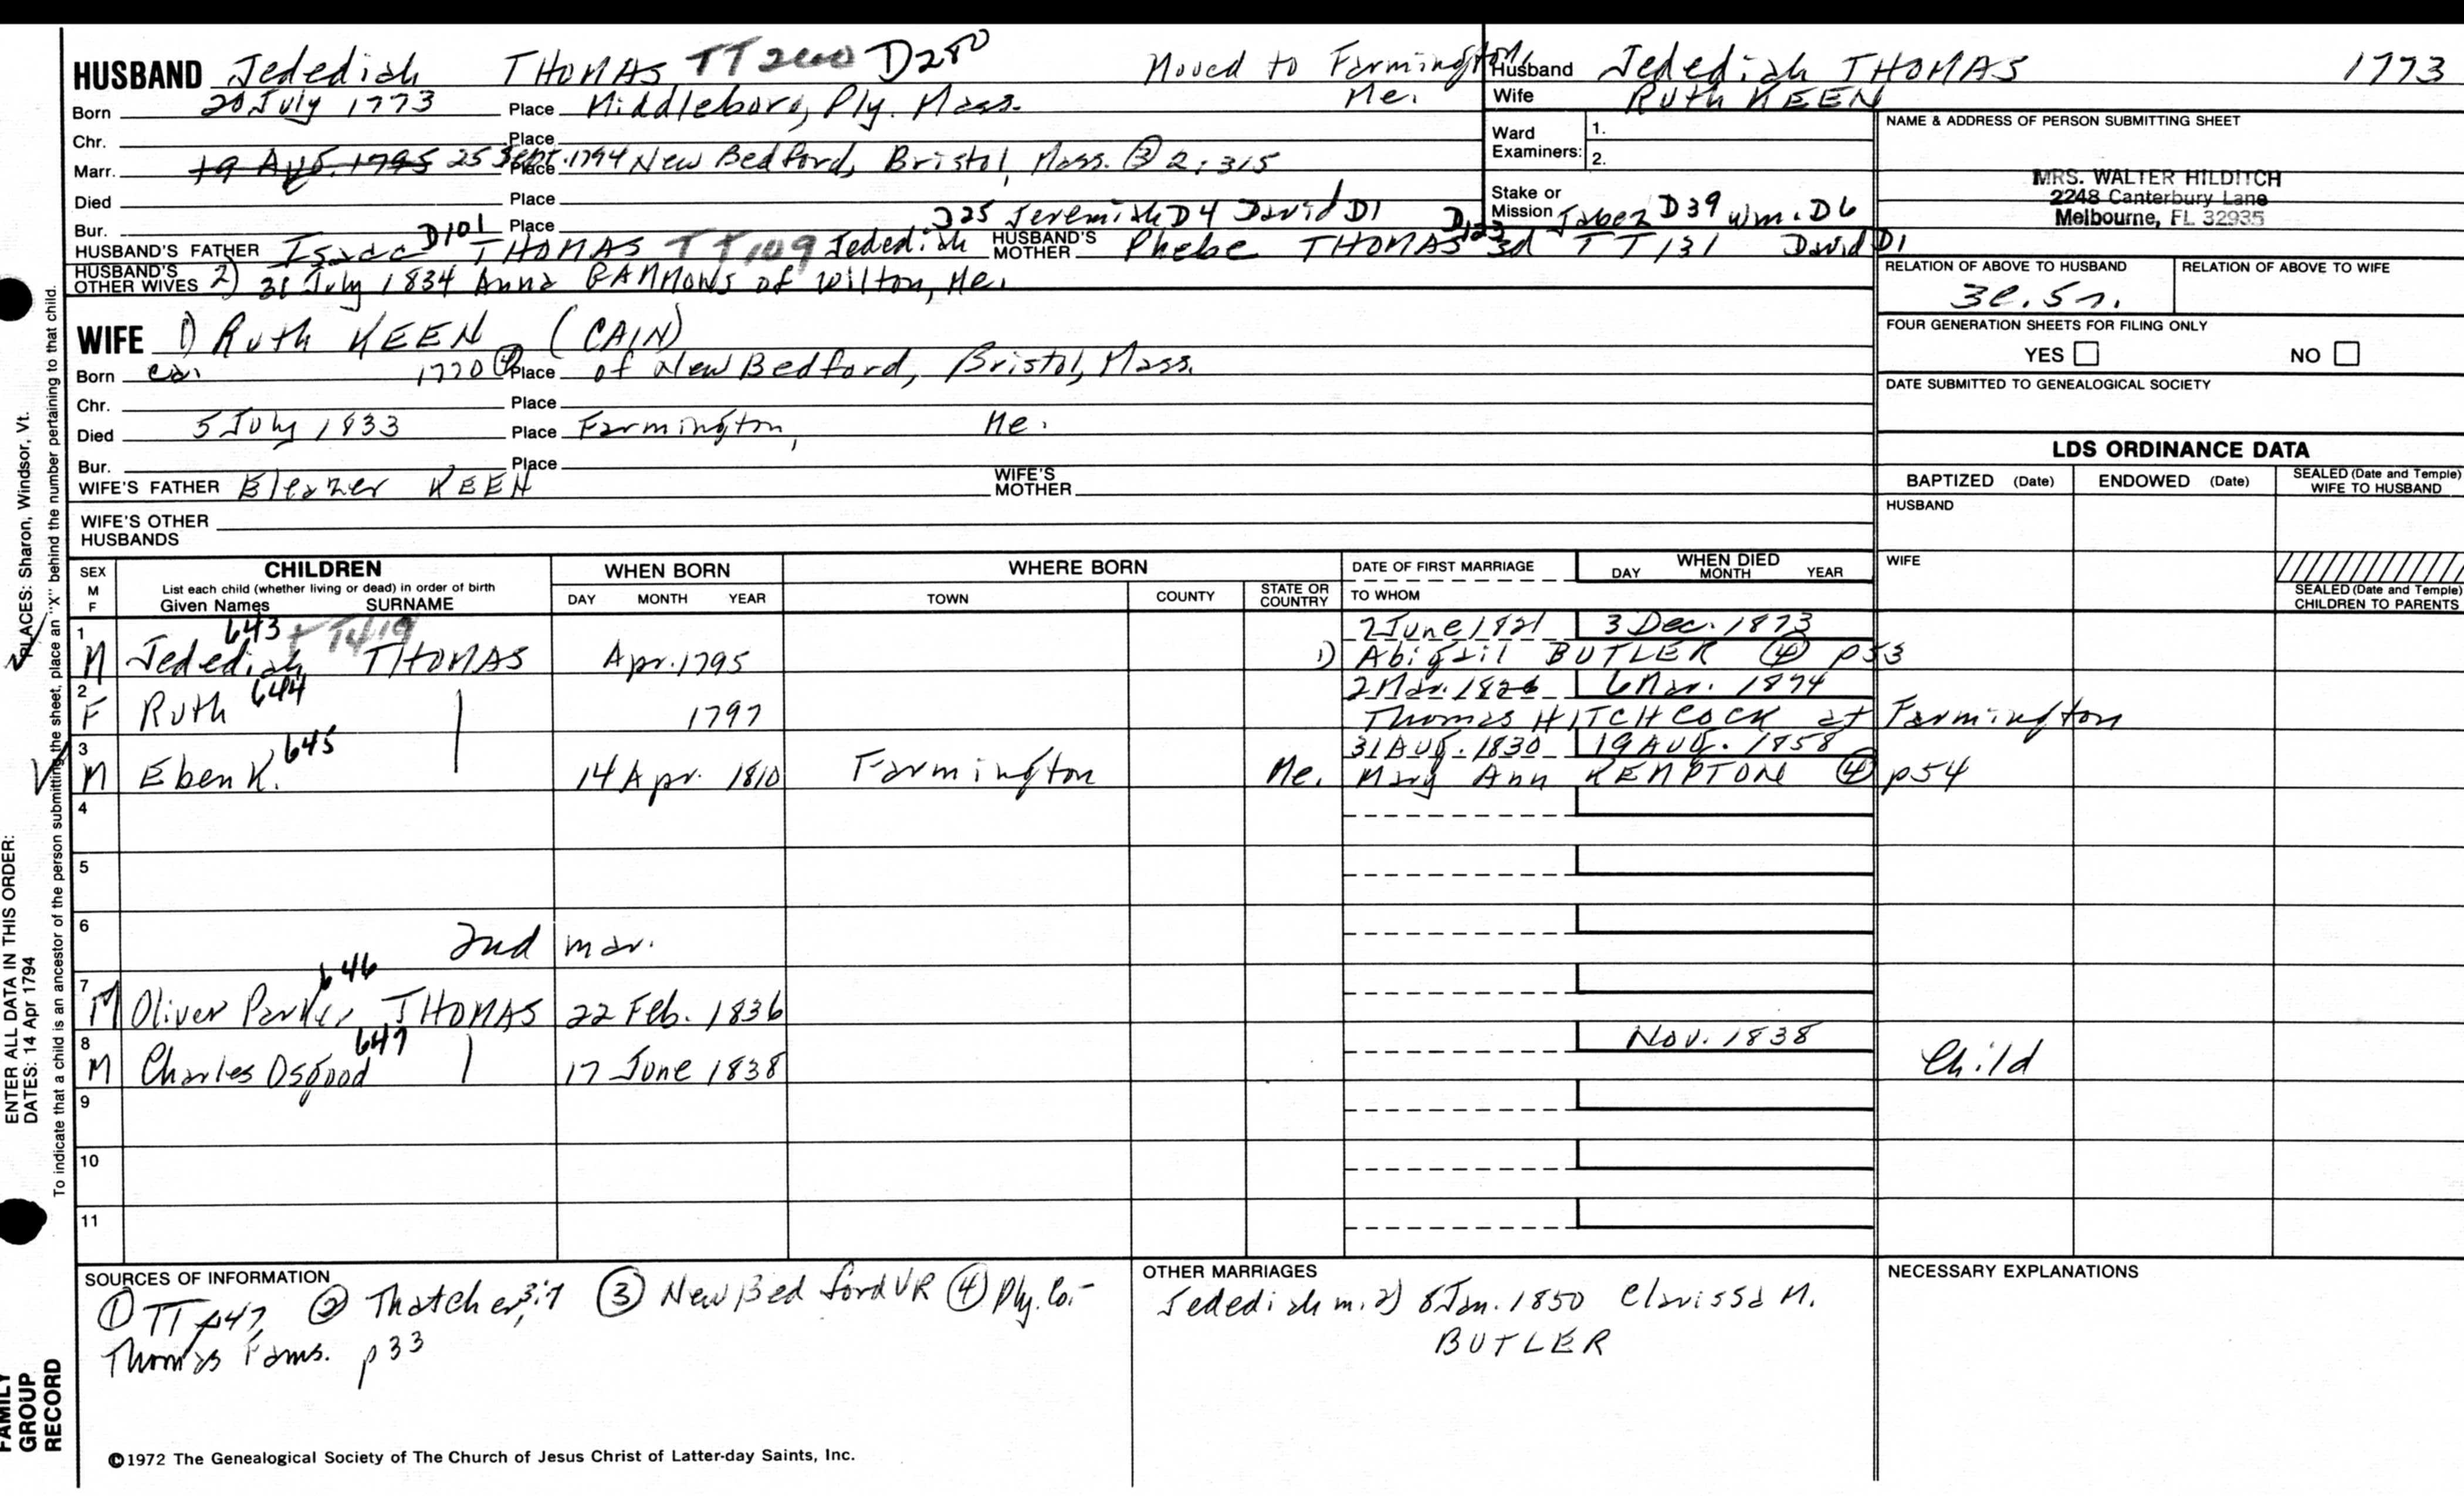 HUSBAND Jedediah THOMAS TT 200 D280 Moved to Farmington,
Born 20 July 1773 Place Middleboro, Ply. Mass. Me.
Chr. Place
Marr. 19 Aug. 1795 25 Sept. 1794 Place New Bedford, Bristol, Mass. ③ 2:315
Died Place
Bur. Place
D101 D25 Jeremiah D4 David D1 D123 Jabez D39 Wm. D6
HUSBAND'S FATHER Isaac THOMAS TT109 Jedediah HUSBAND'S MOTHER Phebe THOMAS 3d TT131 David D1
HUSBAND'S OTHER WIVES 2) 31 July 1834 Anna GAMMONS of Wilton, Me.
WIFE 1) Ruth KEEN (CAIN)
Born ca. 1770 ④ Place of New Bedford, Bristol, Mass.
Chr. Place
Died 5 July 1833 Place Farmington, Me.
Bur. Place
WIFE'S FATHER Eleazer KEEN WIFE'S MOTHER
WIFE'S OTHER HUSBANDS
Husband Jedediah THOMAS 1773
Wife Ruth KEEN
Ward Examiners: 1.
2.
Stake or Mission
NAME & ADDRESS OF PERSON SUBMITTING SHEET
MRS. WALTER HILDITCH
2248 Canterbury Lane
Melbourne, FL 32935
RELATION OF ABOVE TO HUSBAND RELATION OF ABOVE TO WIFE
3c.5r.
FOUR GENERATION SHEETS FOR FILING ONLY
YES NO
DATE SUBMITTED TO GENEALOGICAL SOCIETY
LDS ORDINANCE DATA
BAPTIZED (Date) ENDOWED (Date) SEALED (Date and Temple) WIFE TO HUSBAND
HUSBAND
WIFE
SEALED (Date and Temple) CHILDREN TO PARENTS
SEX M F CHILDREN WHEN BORN WHERE BORN DATE OF FIRST MARRIAGE WHEN DIED
List each child (whether living or dead) in order of birth
Given Names SURNAME DAY MONTH YEAR TOWN COUNTY STATE OR COUNTRY TO WHOM DAY MONTH YEAR
1 643 + TT419 2 June 1821 3 Dec. 1873
M Jedediah THOMAS Apr. 1795 1) Abigail BUTLER ④ p53
2 644 2 Mar. 1826 6 Mar. 1874
F Ruth | 1797 Thomas HITCHCOCK at Farmington
3 645 31 Aug. 1830 19 Aug. 1858
M Eben K. 14 Apr. 1810 Farmington Me. Mary Ann KEMPTON ④ p54
4
5
6
2nd mar.
7 646
M Oliver Parker THOMAS 22 Feb. 1836
8 647 Nov. 1838
M Charles Osgood | 17 June 1838 Child
9
10
11
SOURCES OF INFORMATION
① TT p47, ② Thatcher, 3:7 ③ New Bedford VR ④ Ply. Co.-
Thomas Fams. p33
OTHER MARRIAGES
Jedediah m. 2) 8 Jan. 1850 Clarissa M.
BUTLER
NECESSARY EXPLANATIONS
©1972 The Genealogical Society of The Church of Jesus Christ of Latter-day Saints, Inc.
PLACES: Sharon, Windsor, Vt.
ENTER ALL DATA IN THIS ORDER:
DATES: 14 Apr 1794
To indicate that a child is an ancestor of the person submitting the sheet, place an "X" behind the number pertaining to that child.
FAMILY
GROUP
RECORD